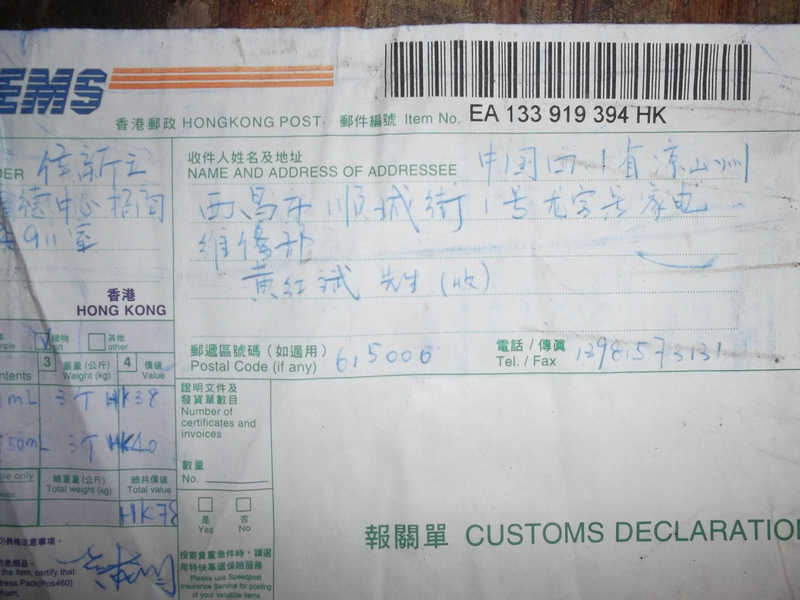 EMS
香港郵政 HONGKONG POST 郵件編號 Item No. EA 133 919 394 HK
收件人姓名及地址
NAME AND ADDRESS OF ADDRESSEE 中国四川省凉山州
西昌市顺城街1号
911室
黄红斌 先生(收)
香港
HONG KONG
郵遞區號碼(如適用)
Postal Code (if any) 615000
電話/傳真
Tel. / Fax
其他
other
3 重量(公斤) 4 價值
Weight (kg) Value
mL 3个 HK38
50mL 3个 HK40
總重量(公斤) 總共價值
Total weight (kg) Total value
HK78
證明文件及
發貨單數目
Number of
certificates and
invoices
數量
No.
是 否
Yes No
報關單 CUSTOMS DECLARATION
投寄貴重急件時,請選
用特快專遞保險服務
Please use Speedpost
Insurance Service for posting
of your valuable items